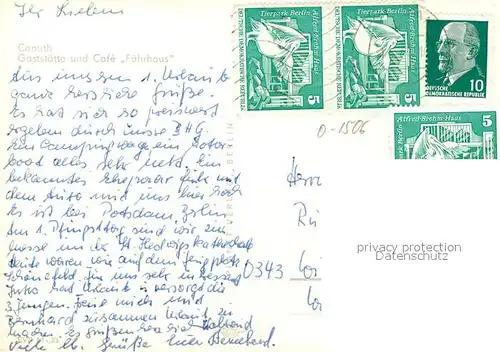 Ihr Lieben
Caputh
Gaststätte und Café „Fährhaus"
Aus unserem 1. Urlaub
ganz herzliche Grüße.
Es hat sich so preiswert
ergeben durch unsere BHG.
Ein Campingwagen, ein Motor
boot alles sehr nett. Ein
bekanntes Ehepaar fuhr mit
dem Auto und uns hier
Es ist bei Potsdam, Berlin
Am 1. Pfingsttag sind wir zur
messe in der St. Hedwigskathedrale
heute waren wir auf dem Flugplatz
Schönefeld, für uns sehr interessant
hat Urlaub u. versorgt die
3 Jungen. Freue mich mit
Bernhard zusammen Urlaub zu
machen. Es grüßen herzlich
viele lb. Grüße Eure
VERLAG
BERLIN
Tierpark Berlin Alfred-Brehm-Haus
DEUTSCHE DEMOKRATISCHE REPUBLIK
5
Tierpark Berlin Alfred-Brehm-Haus
DEUTSCHE DEMOKRATISCHE REPUBLIK
5
10
DEUTSCHE
DEMOKRATISCHE REPUBLIK
5
Tierpark Berlin Alfred-Brehm-Haus
0-1506
Herrn
privacy protection
Datenschutz
0343